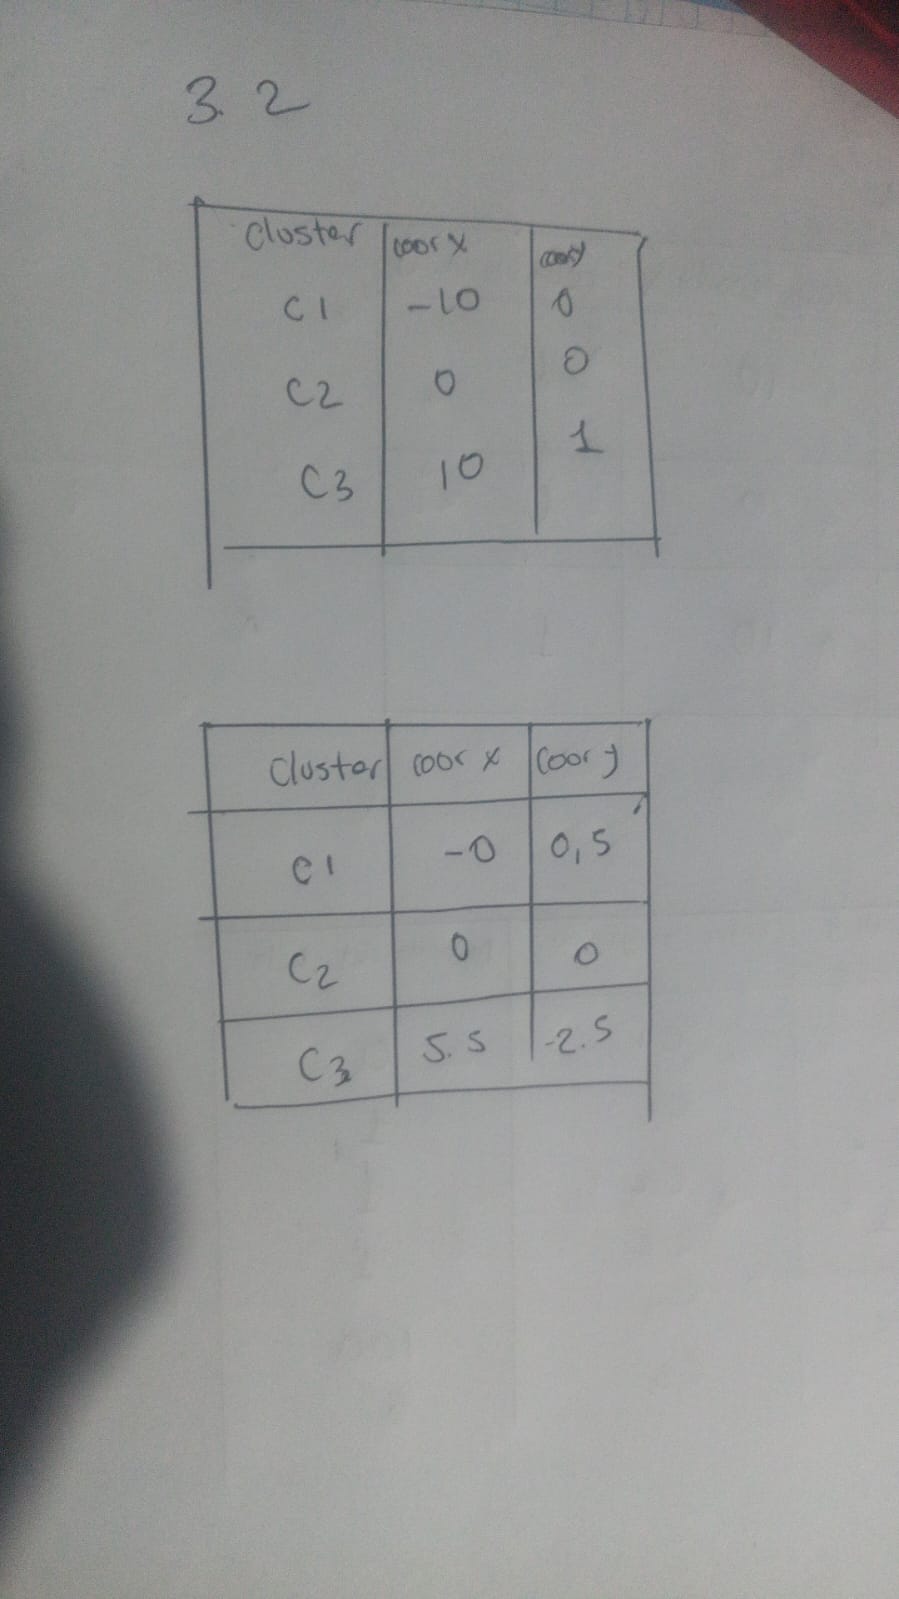 3.2
Cluster coor x coor y
C1 -10 0
C2 0 0
C3 10 1
Cluster coor x coor y
C1 -0 0,5
C2 0 0
C3 5.5 -2.5